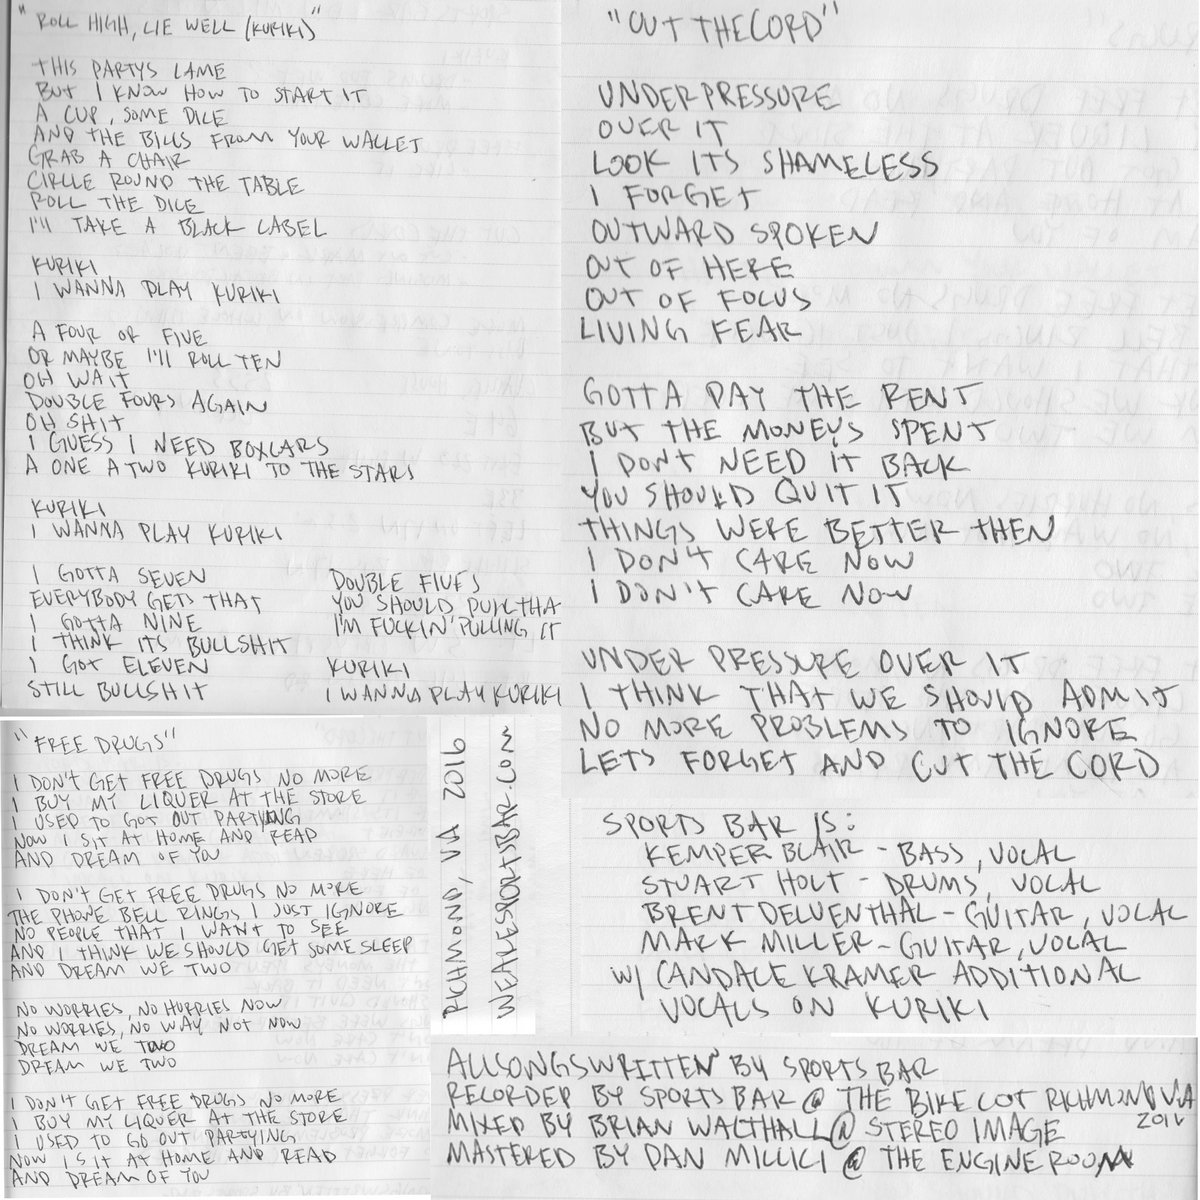 "ROLL HIGH, LIE WELL (KURIKI)"
THIS PARTYS LAME
BUT I KNOW HOW TO START IT
A CUP, SOME DICE
AND THE BILLS FROM YOUR WALLET
GRAB A CHAIR
CIRCLE ROUND THE TABLE
ROLL THE DICE
I'll TAKE A BLACK LABEL
KURIKI
I WANNA PLAY KURIKI
A FOUR OF FIVE
OR MAYBE I'll ROLL TEN
OH WAIT
DOUBLE FOURS AGAIN
OH SHIT
I GUESS I NEED BOXCARS
A ONE A TWO KURIKI TO THE STARS
KURIKI
I WANNA PLAY KURIKI
I GOTTA SEVEN
EVERYBODY GETS THAT
I GOTTA NINE
I THINK ITS BULLSHIT
I GOT ELEVEN
STILL BULLSHIT
DOUBLE FIVES
YOU SHOULD PULL THA
I'M FUCKIN' PULLING IT
KURIKI
I WANNA PLAY KURIKI
"CUT THE CORD"
UNDER PRESSURE
OVER IT
LOOK ITS SHAMELESS
I FORGET
OUTWARD SPOKEN
OUT OF HERE
OUT OF FOCUS
LIVING FEAR
GOTTA PAY THE RENT
BUT THE MONEYS SPENT
I DON'T NEED IT BACK
YOU SHOULD QUIT IT
THINGS WERE BETTER THEN
I DON'T CARE NOW
I DON'T CARE NOW
UNDER PRESSURE OVER IT
I THINK THAT WE SHOULD ADMIT
NO MORE PROBLEMS TO IGNORE
LETS FORGET AND CUT THE CORD
"FREE DRUGS"
I DON'T GET FREE DRUGS NO MORE
I BUY MY LIQUER AT THE STORE
I USED TO GOT OUT PARTYING
NOW I SIT AT HOME AND READ
AND DREAM OF YOU
I DON'T GET FREE DRUGS NO MORE
THE PHONE BELL RINGS I JUST IGNORE
NO PEOPLE THAT I WANT TO SEE
AND I THINK WE SHOULD GET SOME SLEEP
AND DREAM WE TWO
NO WORRIES, NO HURRIES NOW
NO WORRIES, NO WAY NOT NOW
DREAM WE TWO
DREAM WE TWO
I DON'T GET FREE DRUGS NO MORE
I BUY MY LIQUER AT THE STORE
I USED TO GO OUT PARTYING
NOW I SIT AT HOME AND READ
AND DREAM OF YOU
RICHMOND, VA 2016
WEARESPORTSBAR.COM
SPORTS BAR IS:
KEMPER BLAIR - BASS, VOCAL
STUART HOLT - DRUMS, VOCAL
BRENT DELVENTHAL - GUITAR, VOCAL
MARK MILLER - GUITAR, VOCAL
W/ CANDACE KRAMER ADDITIONAL
VOCALS ON KURIKI
ALL SONGS WRITTEN BY SPORTS BAR
RECORDED BY SPORTS BAR @ THE BIKE LOT RICHMOND VA
2016
MIXED BY BRIAN WALTHALL @ STEREO IMAGE
MASTERED BY DAN MILLICI @ THE ENGINE ROOM